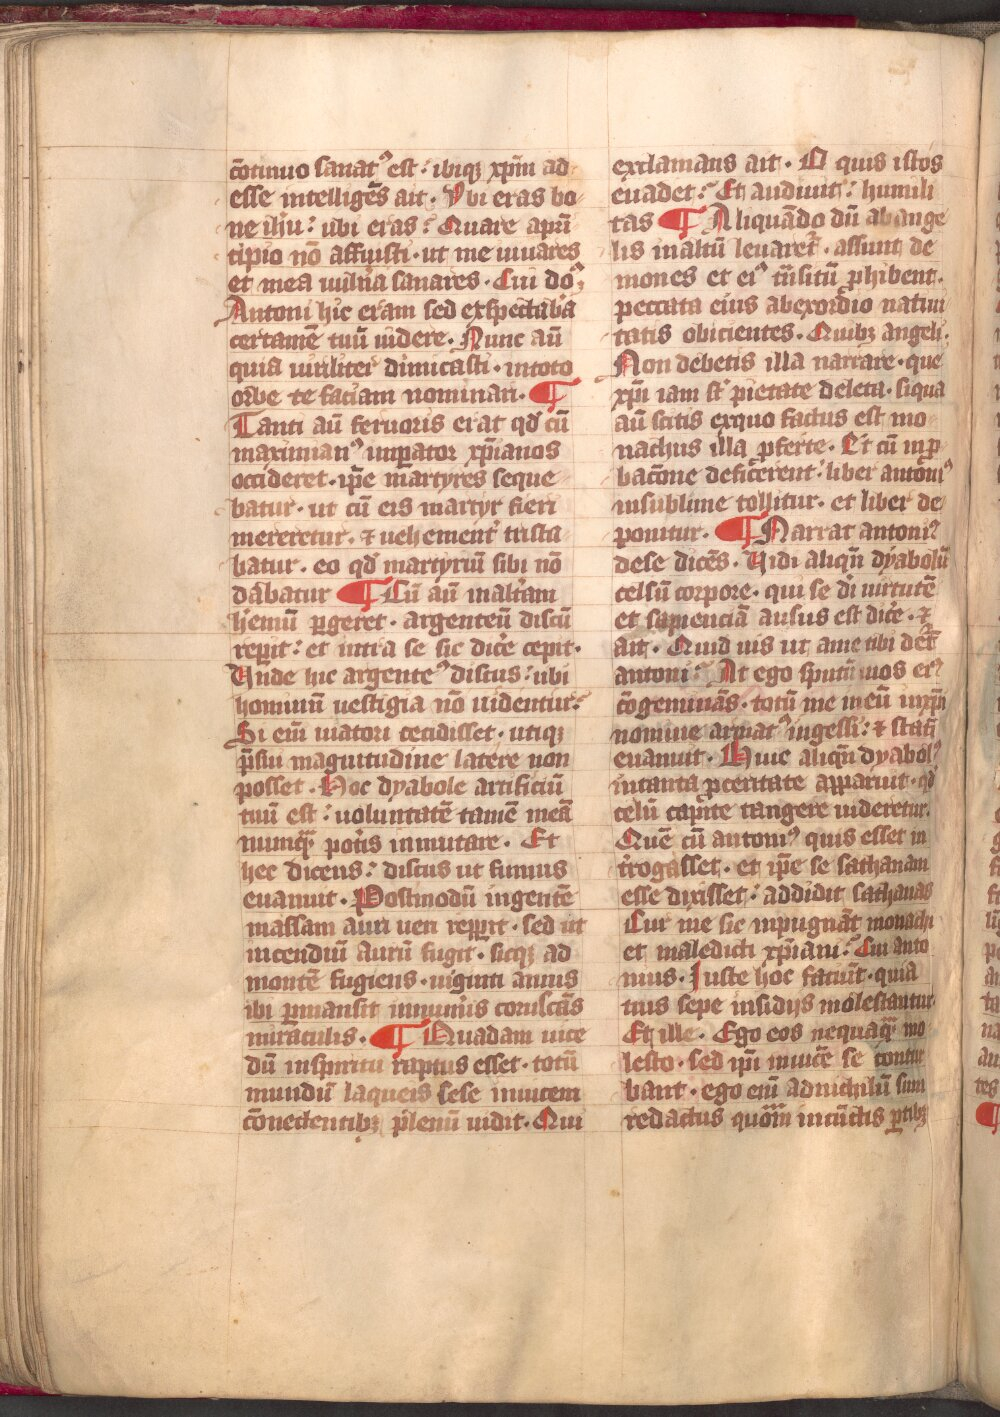 co̅tinuo sanatꝰ est : ibiqꝫ xp̅m ad
esse intellige̅s ait · Vbi eras bo
ne ih̅u : ubi eras : Quare apri̅
cipio no̅ affuisti · ut me iuuares
et mea uuln̅a sanares · Cui do̅ꝰ
Antoni hic eram sed exspectaba̅
certame̅ tuu̅ uidere · Nunc au̅
quia uiriliter dimicasti · intoto
orbe te faciam nominari · ¶
Tanti au̅ feruoris erat qd̅ cu̅
maximianꝰ imꝑator xp̅ianos
occideret · ip̅e martyres seque
batur · ut cu̅ eis martyr fieri
mereretur · ⁊ uehement̅ trista
batur · eo qd̅ martyriu̅ sibi no̅
da̅batur ¶ Cu̅ au̅ inalt̅am
hemu̅ ꝑgeret · argenteu̅ discu̅
repp̅it : et intra se sic dic̅e cepit ·
Unde hic argenteꝰ discus : ubi
hominu̅ uestigia no̅ uidentur :
Si eni̅ uiatori cecidisset · utiqꝫ
p̅sui magnitudine latere non
posset · Hoc dyabole artificiu̅
tuu̅ est : uoluntate̅ tame̅ mea̅
numq̅ pot̅is inmutare · Et
hec dicens : discus ut fumus
euanuit · Postmodu̅ ingente̅
massam auri ueri repꝑit · sed ut
incendiu̅ auru̅ fugit · sicqꝫ ad
monte̅ fugiens · uiginti annis
ibi ꝑmansit innum̅is corusca̅s
miraculis · ¶ Quadam uice
du̅ inspiritu raptus esset · totu̅
mundu̅ laqueis sese inuicem
co̅nectentibꝫ plenu̅ uidit · Qui
exclamans ait · O quis istos
euadet : Et audiuit : humili
tas ¶ Aliqua̅do du̅ ab ange
lis inaltu̅ leuaret̅ · assunt de
mones et eiꝰ tn̅situ̅ ꝓhibent ·
peccata eius abexordio natiui
tatis obicientes · Quibꝫ angeli ·
Non debetis illa narrare · que
xp̅i iam st̅ pietate deleta · siqua
au̅ scitis exquo factus est mo
nachus illa ꝓferte · Et cu̅ inꝓ
bac̅one defic̅erent : liber antoniꝰ
insublime tollitur · et liber de
ponitur · ¶ Narrat antoniꝰ
dese dice̅s · Uidi aliqn̅ dyabolu̅
celsu̅ corpore · qui se di̅ uirtute̅
et sapiencia̅ ausus est dic̅e · ⁊
ait · Quid uis ut ame tibi det̅
antoni : At ego sputu̅ inos eiꝰ
co̅gemina̅s · totu̅ me in eu̅ inxp̅i
nomine armatꝰ ingessi : ⁊ stati̅
euanuit · Huic aliqn̅ dyabolꝰ
intanta ꝓceritate apparuit · qd̅
celu̅ capite tangere uideretur ·
Que̅ cu̅ antoniꝰ quis esset in
t̅rogasset · et ip̅e se sathanam
esse dixisset : addidit sathanas
Cur me sic inpugna̅t monachi
et maledicti xp̅iani : Cui anto
nius · Iuste hoc faciu̅t · quia
tuis sepe insidijs molestantur
Et ille · Ego eos nequaq̅ mo
lesto · sed ip̅i inuice̅ se contur
bant · ego eni̅ adnichilu̅ sum
redactus quo̅m incu̅ctis ꝑtibꝫ